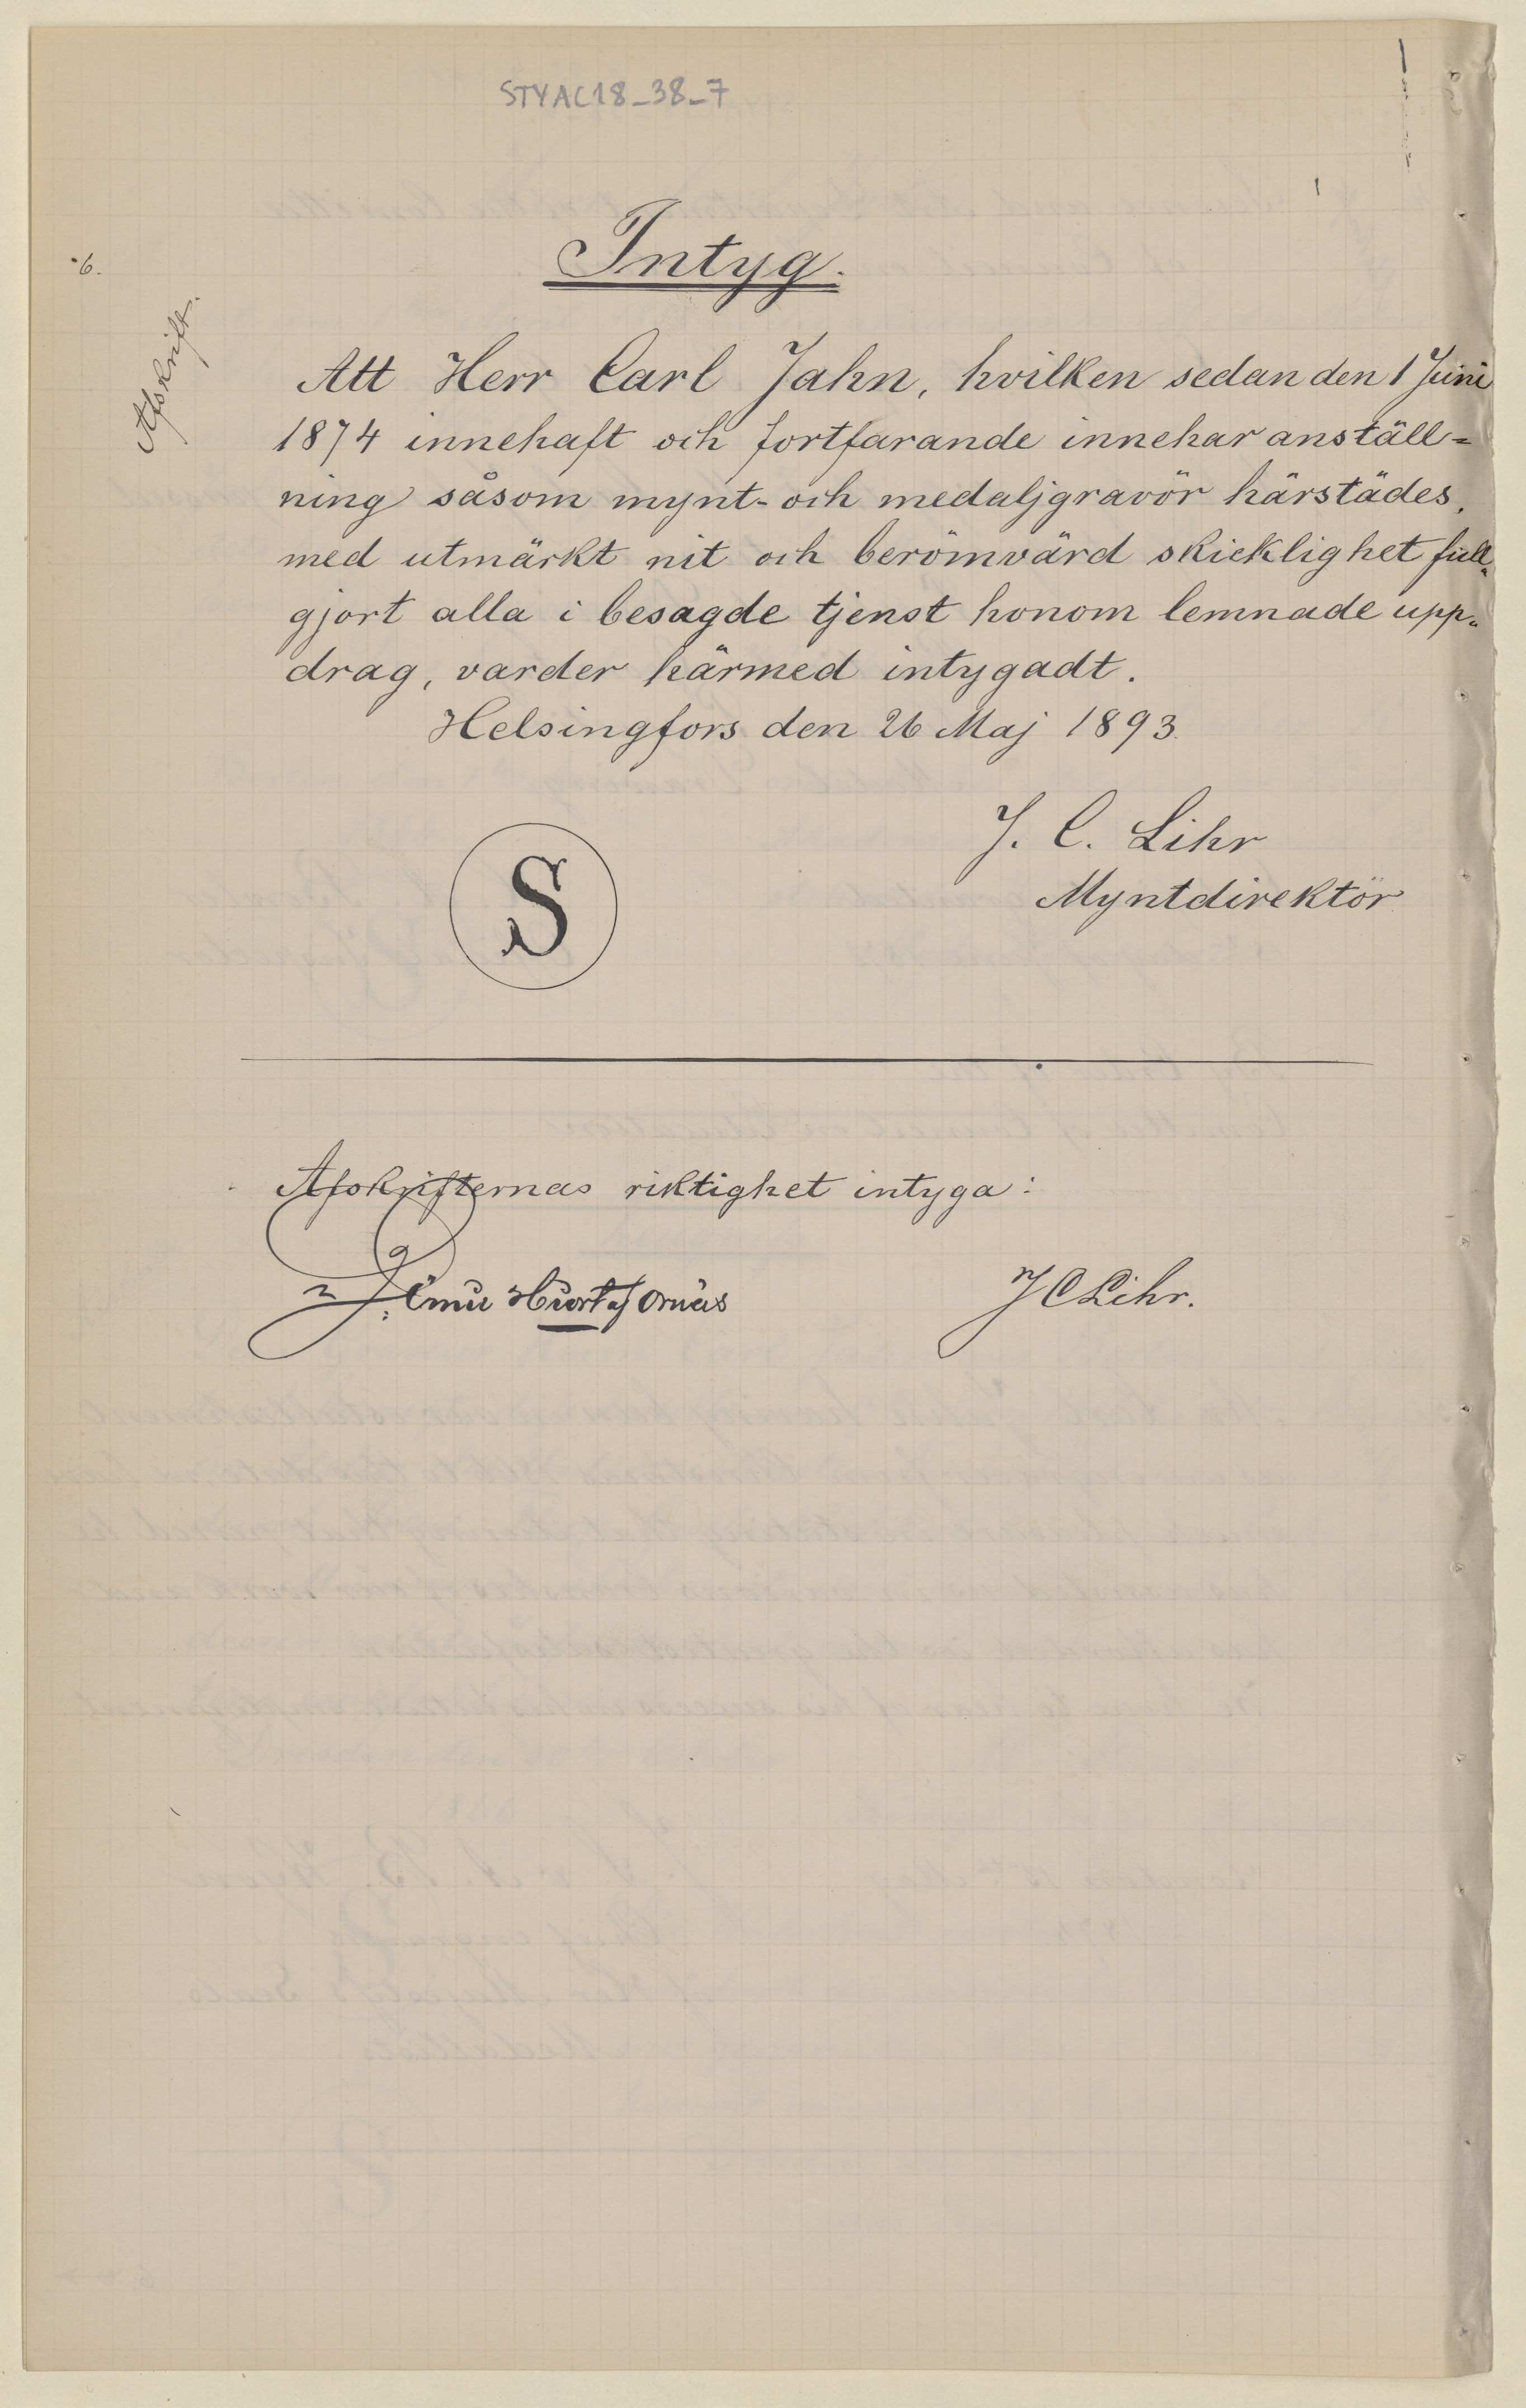 STYAC18_38_7
6.
Afskrift.
Intyg.
Att Herr Carl Jahn, hvilken sedan den 1 Juni
1874 innehaft och fortfarande innehar anställ=
ning såsom mynt- och medaljgravör härstädes,
med utmärkt nit och berömvärd skicklighet full-
gjort alla i besagde tjenst honom lemnade upp-
drag, varder härmed intygadt.
Helsingfors den 26 Maj 1893.
J. C. Lihr
Myntdirektör
S
Afskrifternas riktighet intyga:
Hiort af Ornäs
J C Lihr.